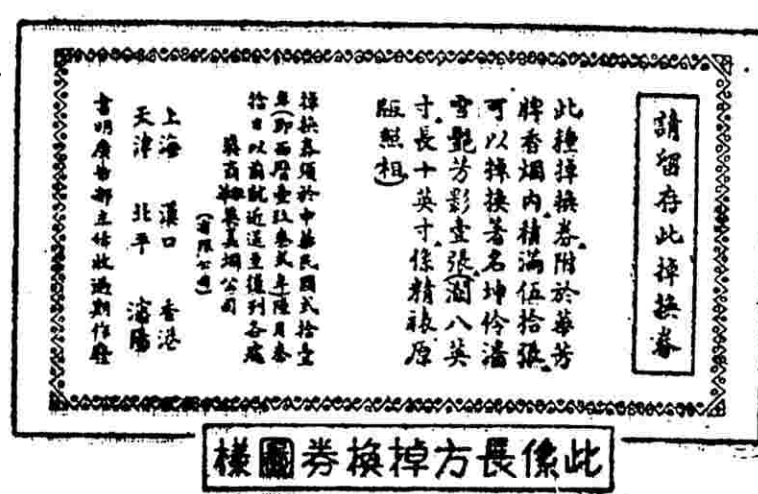 請留存此掉換券
此種掉換券附於華芳
牌香烟內積滿伍拾張
可以掉換著名坤伶潘
雪艷芳影壹張(濶八英
寸長十英寸係精裱原
版照相)
掉換券須於中華民國式拾壹
年(即西曆壹玖叁式年)陸月叁
拾日以前就近送至後列各處
英商 英美烟公司
(有限公司)
上海 漢口 香港
天津 北平 瀋陽
書明廣告部主任收過期作廢
此係長方掉換券圖樣